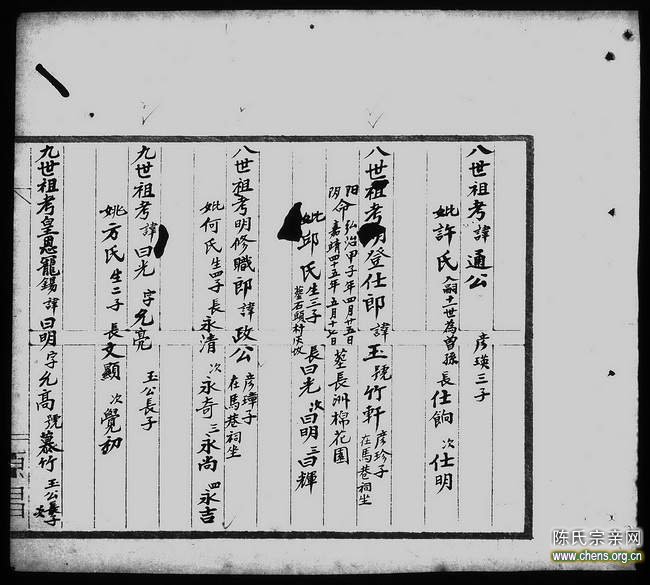 八世祖考諱通公 彦瑛三子
妣許氏 入嗣十一世為曾孫 長仕餉 次仕明
八世祖考明登仕郎諱玉號竹軒 彦珍子 在馬巷祠坐
陽命弘治甲子年四月廿五日
陰命嘉靖四十五年五月十七日 葬長洲棉花園
妣邱氏生三子 長曰光 次曰明 三曰輝
葬石頭村
八世祖考明修職郎諱政公 彦璋子 在馬巷祠坐
妣何氏生四子 長永清 次永奇 三永尚 四永吉
九世祖考諱曰光字允亮 玉公長子
妣方氏生二子 長文顯 次覺初
九世祖考皇恩寵錫諱曰明字允高號慕竹 玉公次子
陈氏宗亲网
www.chens.org.cn